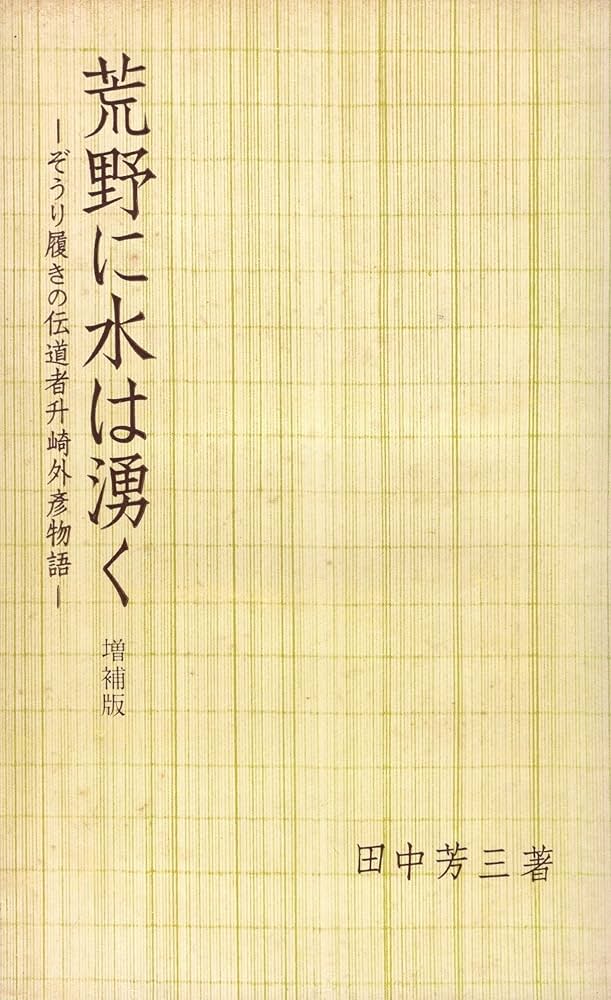 荒野に水は湧く
―ぞうり履きの伝道者升崎外彦物語―
増補版
田中芳三著